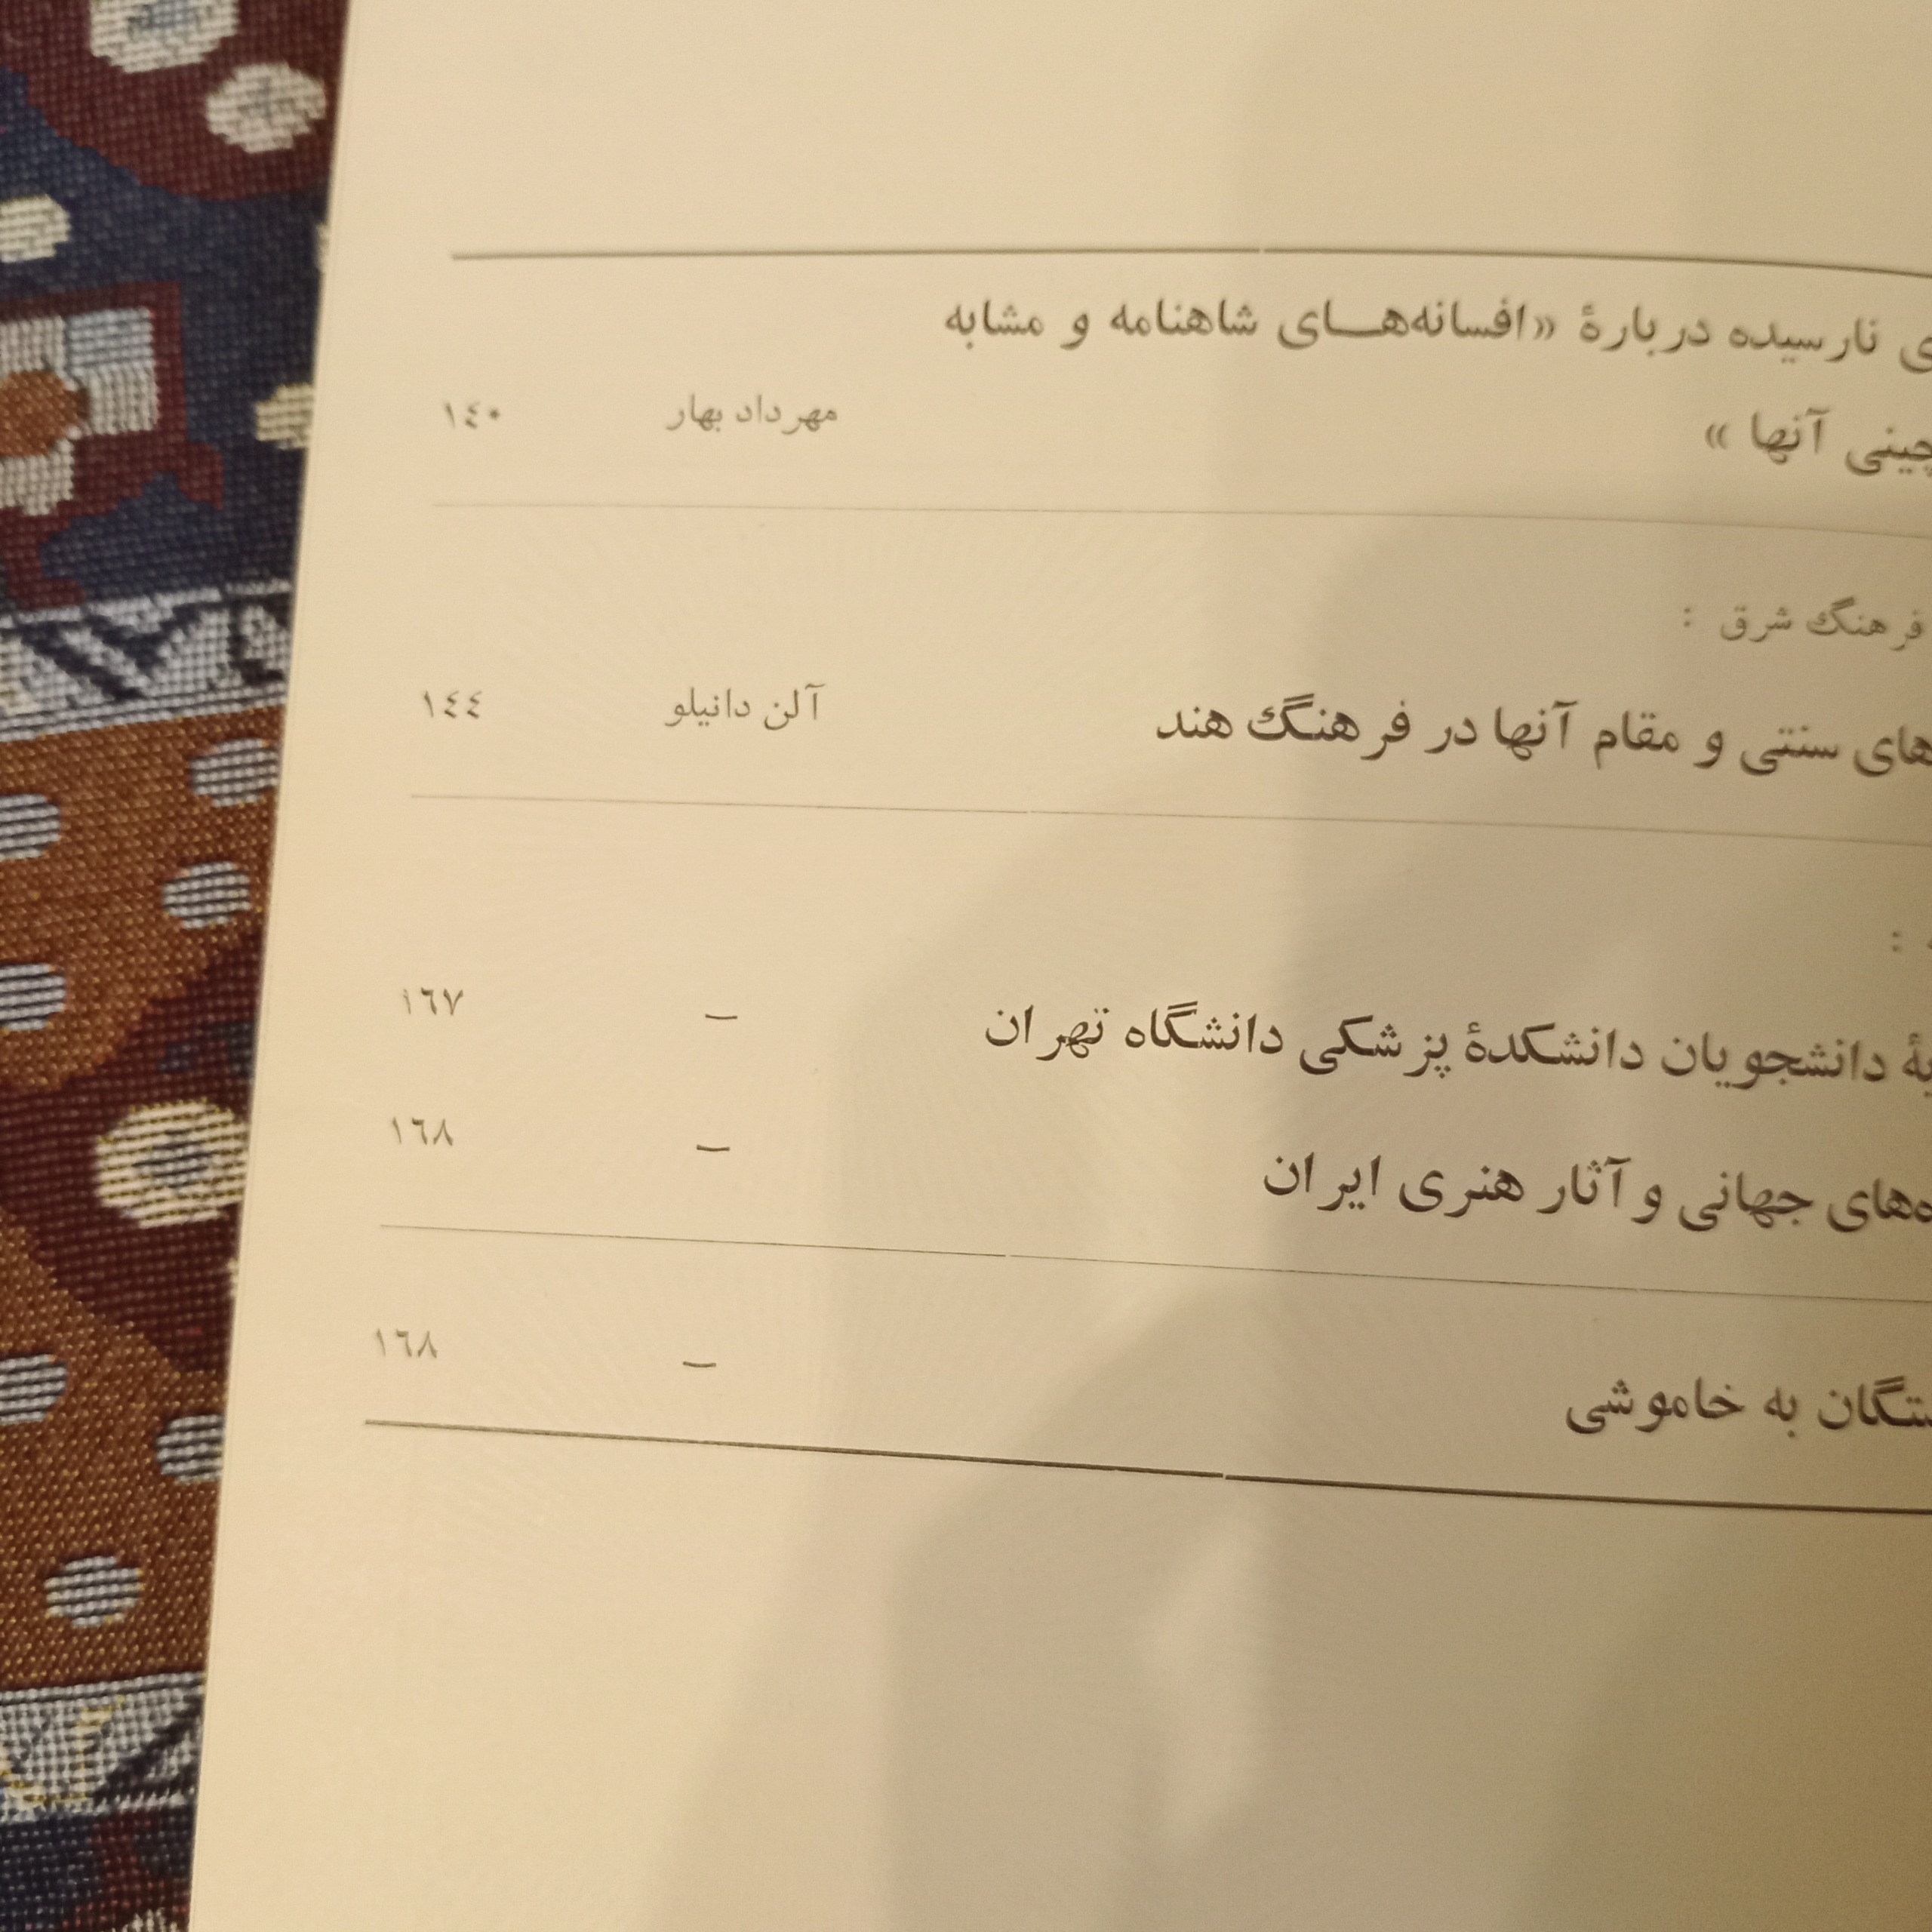 نارسیده دربارهٔ «افسانه‌هـــای شاهنامه و مشابه
چینی آنها »
مهرداد بهار
١٤٠
فرهنگ شرق :
های سنتی و مقام آنها در فرهنگ هند
آلن دانیلو
١٤٤
دانشجویان دانشکدهٔ پزشکی دانشگاه تهران
—
١٦٧
های جهانی و آثار هنری ایران
—
١٦٨
به خاموشی
—
١٦٨